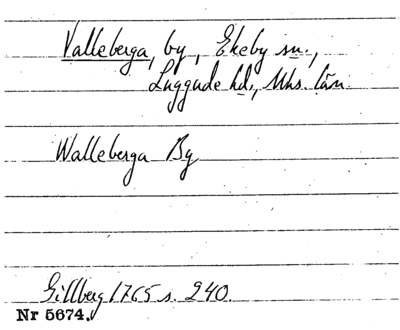 Valleberga, by, Ekeby sn.,
Luggude hd., Mhs. län.
Walleberga By
Gillberg 1765 s. 240.
Nr 5674.